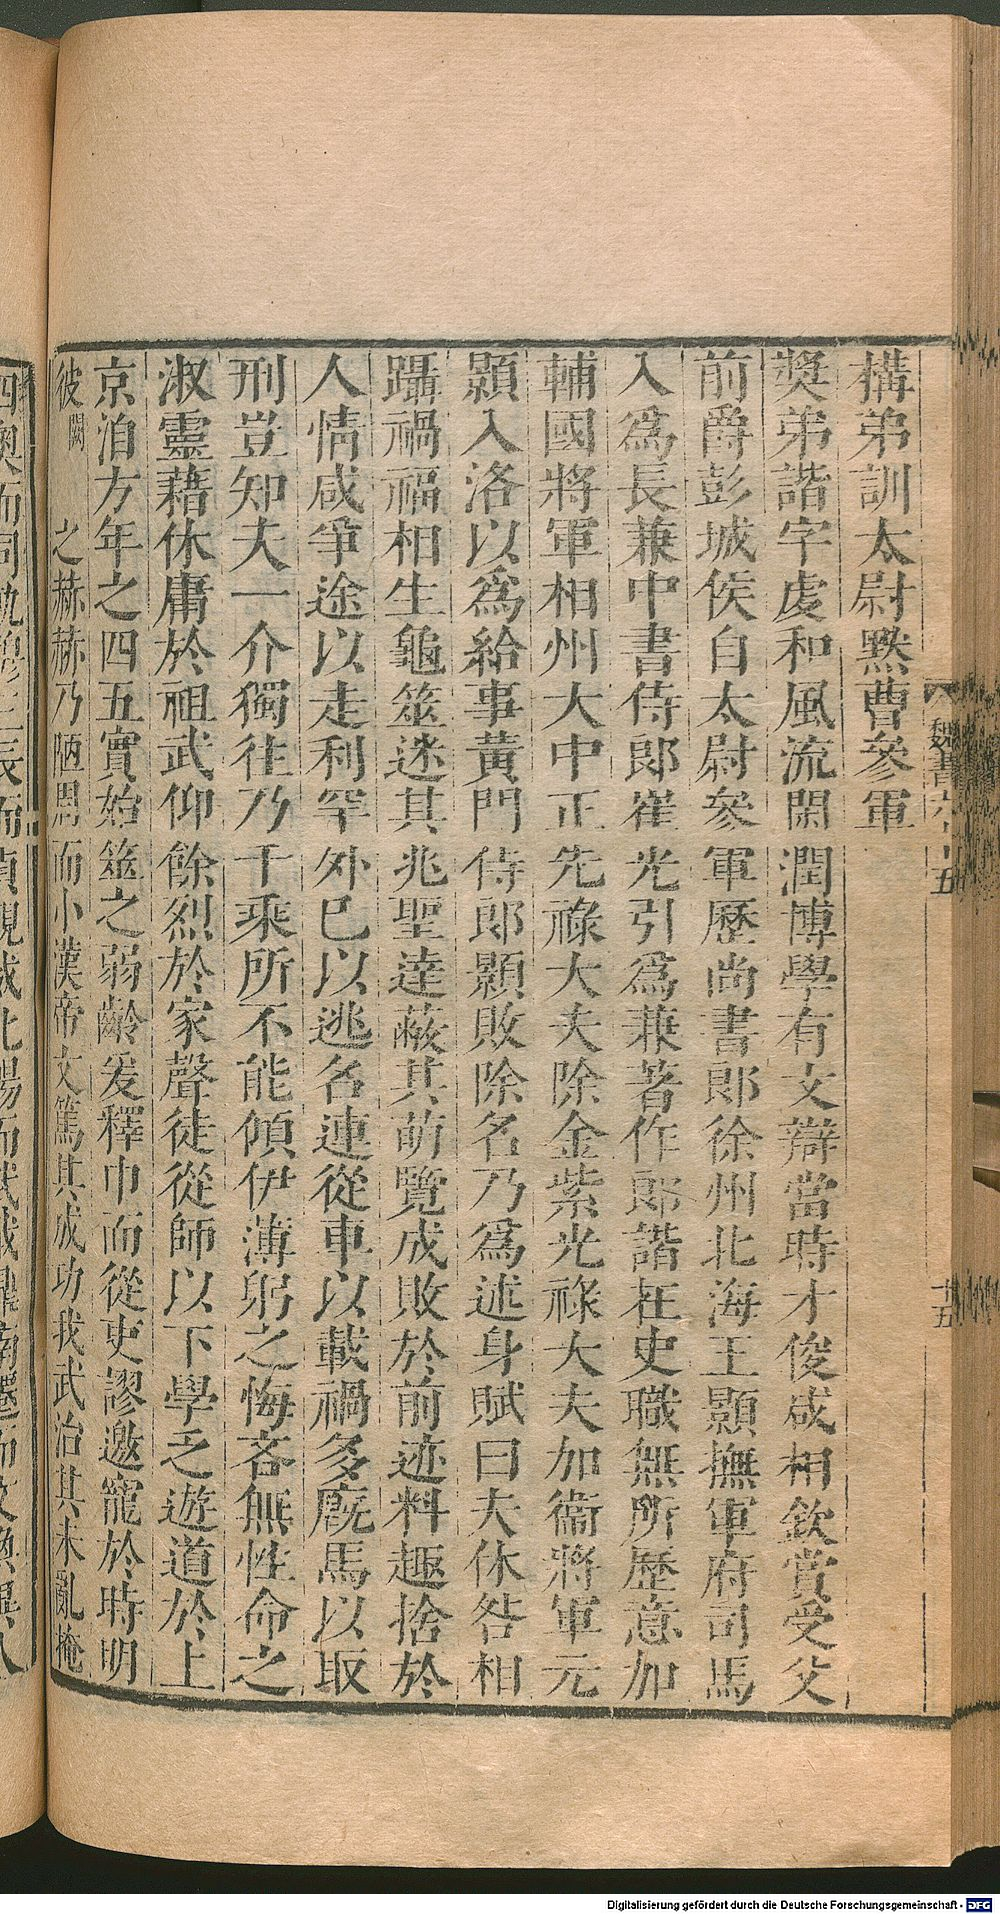 構弟訓太尉默曹參軍
奬弟諧字虔和風流閑潤博學有文辯當時才俊咸相欽賞受父
前爵彭城侯自太尉參軍歷尚書郎徐州北海王顥撫軍府司馬
入爲長兼中書侍郎崔光引爲兼著作郎諧在史職無所歷意加
輔國將軍相州大中正先祿大夫除金紫光祿大夫加衞將軍元
顥入洛以爲給事黃門侍郎顥敗除名乃爲述身賦曰夫休咎相
躡禍福相生龜筮迷其兆聖達蔽其萌覽成敗於前迹料趣捨於
人情咸爭途以走利罕外已以逃名連從車以載禍多廐馬以取
刑豈知夫一介獨往乃千乘所不能傾伊薄躬之悔吝無性命之
淑靈藉休庸於祖武仰餘烈於家聲徒從師以下學乏遊道於上
京洎方年之四五實始筮之弱齡爰釋巾而從吏謬邀寵於時明
彼闕 之赫赫乃陋周而小漢帝文篤其成功我武治其未亂掩
魏書六十五
十五
Digitalisierung gefördert durch die Deutsche Forschungsgemeinschaft - DFG